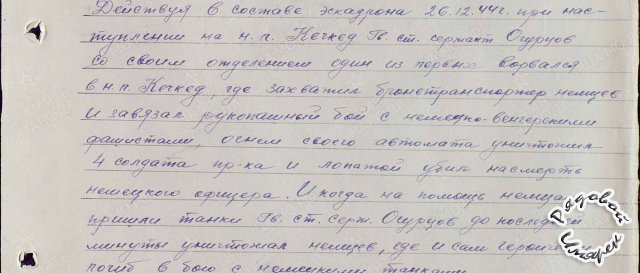 Действуя в составе эскадрона 26.12.44г. при нас-
туплении на н.п. Кечкед Гв. ст. сержант Огурцов
со своим отделением один из первых ворвался
в н.п. Кечкед, где захватил бронетранспортер немцев
и завязал рукопашный бой с немецко-венгерскими
фашистами, огнем своего автомата уничтожил
4 солдата пр-ка и лопатой убил насмерть
немецкого офицера. И когда на помощь
пришли танки Гв. ст. серж. Огурцов до последней
минуты уничтожал немцев, где и сам
погиб в бою с немецкими танками
Рядовой